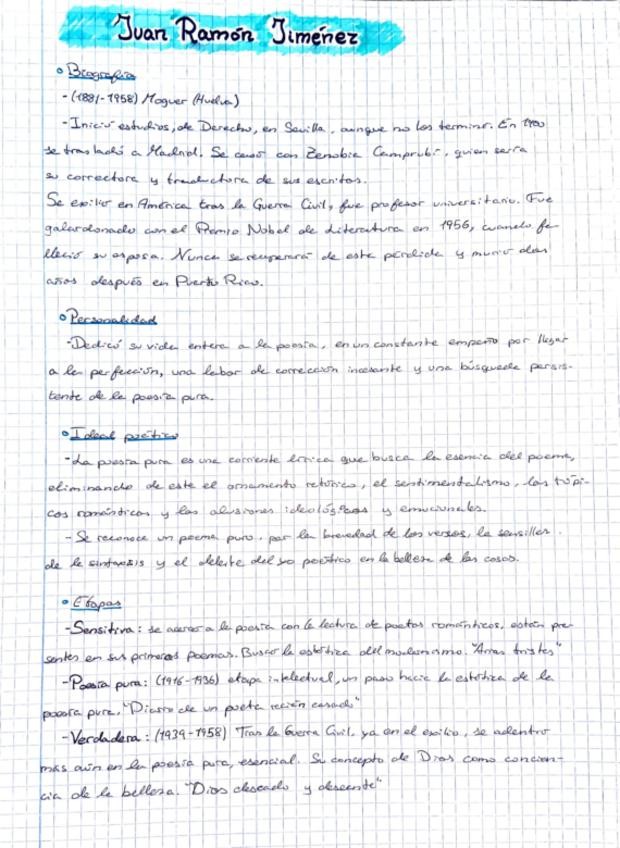 Juan Ramón Jiménez
Biografía
- (1881-1958) Moguer (Huelva)
- Inició estudios, de Derecho, en Sevilla, aunque no los terminó. En 1900
se trasladó a Madrid. Se casó con Zenobia Camprubí, quien sería
su correctora y traductora de sus escritos.
Se exilió en América tras la Guerra Civil, fue profesor universitario. Fue
galardonado con el Premio Nobel de Literatura en 1956, cuando fa-
lleció su esposa. Nunca se recuperará de esta pérdida y murió dos
años después en Puerto Rico.
Personalidad
- Dedicó su vida entera a la poesía, en un constante empeño por llegar
a la perfección, una labor de corrección incesante y una búsqueda persis-
tente de la poesía pura.
Ideal poético
- La poesía pura es una corriente lírica que busca la esencia del poema,
eliminando de este el ornamento retórico, el sentimentalismo, los tópi-
cos románticos y las alusiones ideológicas y emocionales.
- Se reconoce un poema puro, por la brevedad de los versos, la sensillez
de la sintaxis y el deleite del yo poético en la belleza de las cosas.
Etapas
- Sensitiva: se acercó a la poesía con la lectura de poetas románticos, están pre-
sentes en sus primeros poemas. Buscó la estética del modernismo. "Arias tristes"
- Poesía pura: (1916-1936) etapa intelectual, un paso hacia la estética de la
poesía pura. "Diario de un poeta recién casado"
- Verdadera: (1939-1958) Tras la Guerra Civil, ya en el exilio, se adentró
más aún en la poesía pura, esencial. Su concepto de Dios como concien-
cia de la belleza. "Dios deseado y deseante"